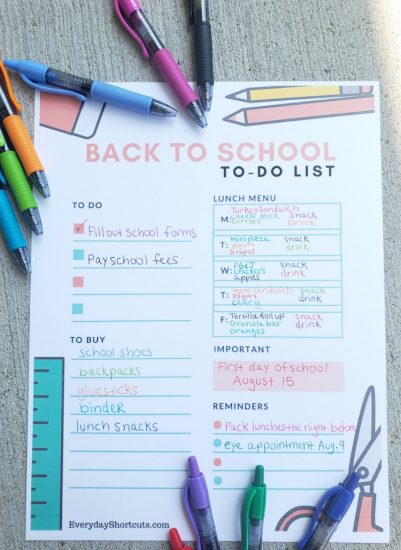 BACK TO SCHOOL
TO-DO LIST
TO DO
Fill out school forms
Pay school fees
TO BUY
school shoes
backpacks
gluesticks
binder
lunch snacks
LUNCH MENU
M: Turkey Sandwich
cheese stick snack
carrots drink
T: mini pizza snack
yogurt drink
Grapes
W: PB+J snack
crackers drink
apples
T: Ham sandwich snack
yogurt drink
celery
F: Tortilla Roll up snack
Granola bar drink
oranges
IMPORTANT
First day of school
August 15
REMINDERS
Pack lunches the night before
eye appointment Aug. 9
EverydayShortcuts.com